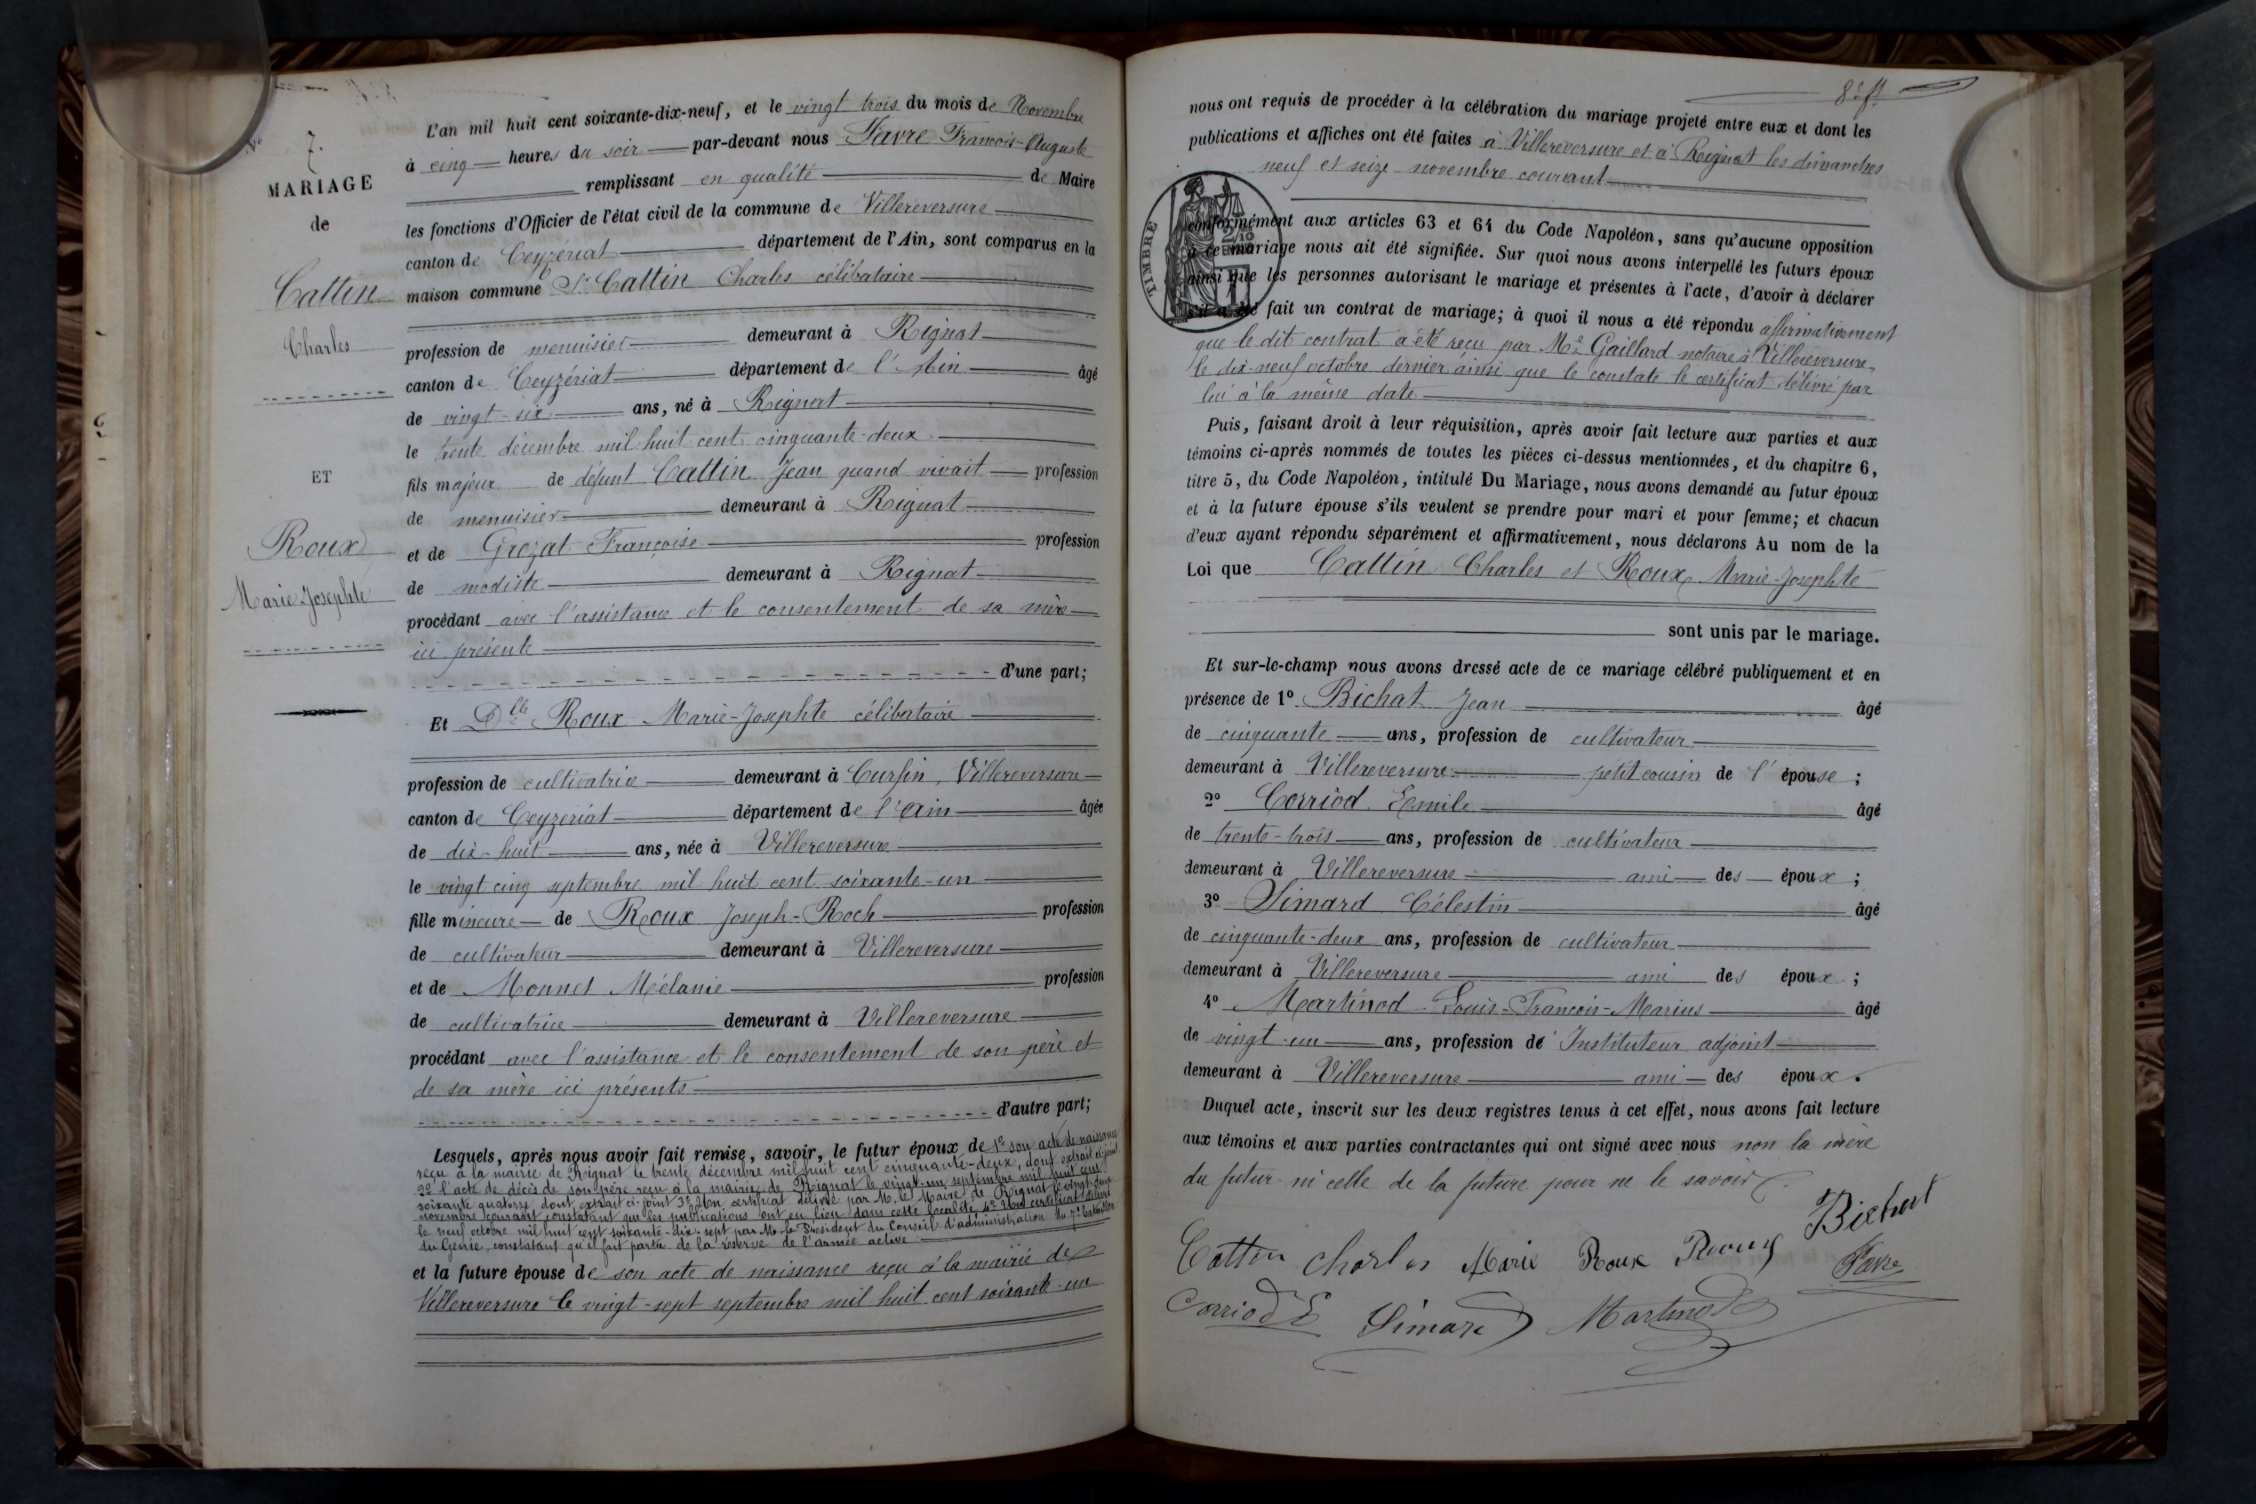 7.
MARIAGE
de
Cattin
Charles
ET
Roux
Marie-Josephte
L'an mil huit cent soixante-dix-neuf, et le vingt trois du mois de Novembre
à cinq heures du soir par-devant nous Favre François-Auguste
remplissant en qualité de Maire
les fonctions d'Officier de l'état civil de la commune de Villereversure
canton de Ceyzériat département de l'Ain, sont comparus en la
maison commune Sr Cattin Charles célibataire
profession de menuisier demeurant à Rignat
canton de Ceyzériat département de l'Ain âgé
de vingt-six ans, né à Rignat
le trente décembre mil huit cent cinquante-deux
fils majeur de défunt Cattin Jean quand vivait profession
de menuisier demeurant à Rignat
et de Grezat Françoise profession
de modiste demeurant à Rignat
procédant avec l'assistance et le consentement de sa mère
ici présente
d'une part;
Et Dlle Roux Marie-Josephte célibataire
profession de cultivatrice demeurant à Cursin, Villereversure
canton de Ceyzériat département de l'Ain âgée
de dix-huit ans, née à Villereversure
le vingt cinq septembre mil huit cent soixante-un
fille mineure de Roux Joseph-Roch profession
de cultivateur demeurant à Villereversure
et de Monnet Mélanie profession
de cultivatrice demeurant à Villereversure
procédant avec l'assistance et le consentement de son père et
de sa mère ici présents
d'autre part;
Lesquels, après nous avoir fait remise, savoir, le futur époux de 1º son acte de naissance
reçu à la mairie de Rignat le trente décembre mil huit cent cinquante-deux, dont extrait ci-joint
2º l'acte de décès de son père reçu à la mairie de Rignat le vingt-un septembre mil huit cent
soixante quatorze dont extrait ci-joint 3º Un certificat délivré par M. le Maire de Rignat le vingt-deux
novembre courant constatant que les publications ont eu lieu dans cette localité 4º Un certificat délivré
le neuf octobre mil huit cent soixante-dix-sept par Mr le Président du Conseil d'administration du 7e bataillon
du Génie, constatant qu'il fait partie de la réserve de l'armée active
et la future épouse de son acte de naissance reçu à la mairie de
Villereversure le vingt-sept septembre mil huit cent soixante-un
nous ont requis de procéder à la célébration du mariage projeté entre eux et dont les
publications et affiches ont été faites à Villereversure et à Rignat les dimanches
neuf et seize novembre courant
TIMBRE
conformément aux articles 63 et 64 du Code Napoléon, sans qu'aucune opposition
à ce mariage nous ait été signifiée. Sur quoi nous avons interpellé les futurs époux
ainsi que les personnes autorisant le mariage et présentes à l'acte, d'avoir à déclarer
s'il a été fait un contrat de mariage; à quoi il nous a été répondu affirmativement
que le dit contrat a été reçu par Me Gaillard notaire à Villereversure
le dix-neuf octobre dernier ainsi que le constate le certificat délivré par
lui à la même date
Puis, faisant droit à leur réquisition, après avoir fait lecture aux parties et aux
témoins ci-après nommés de toutes les pièces ci-dessus mentionnées, et du chapitre 6,
titre 5, du Code Napoléon, intitulé Du Mariage, nous avons demandé au futur époux
et à la future épouse s'ils veulent se prendre pour mari et pour femme; et chacun
d'eux ayant répondu séparément et affirmativement, nous déclarons Au nom de la
Loi que Cattin Charles et Roux Marie-Josephte
sont unis par le mariage.
Et sur-le-champ nous avons dressé acte de ce mariage célébré publiquement et en
présence de 1º Bichat Jean âgé
de cinquante ans, profession de cultivateur
demeurant à Villereversure petit cousin de l'épouse;
2º Corriod Emile âgé
de trente-trois ans, profession de cultivateur
demeurant à Villereversure ami des époux;
3º Simard Célestin âgé
de cinquante-deux ans, profession de cultivateur
demeurant à Villereversure ami des époux;
4º Martinod Louis-François-Marius âgé
de vingt-un ans, profession de Instituteur adjoint
demeurant à Villereversure ami des époux.
Duquel acte, inscrit sur les deux registres tenus à cet effet, nous avons fait lecture
aux témoins et aux parties contractantes qui ont signé avec nous non la mère
du futur ni celle de la future pour ne le savoir.
Bichat
Cattin Charles Marie Roux Roux Favre
Corriod E Simard Martinod